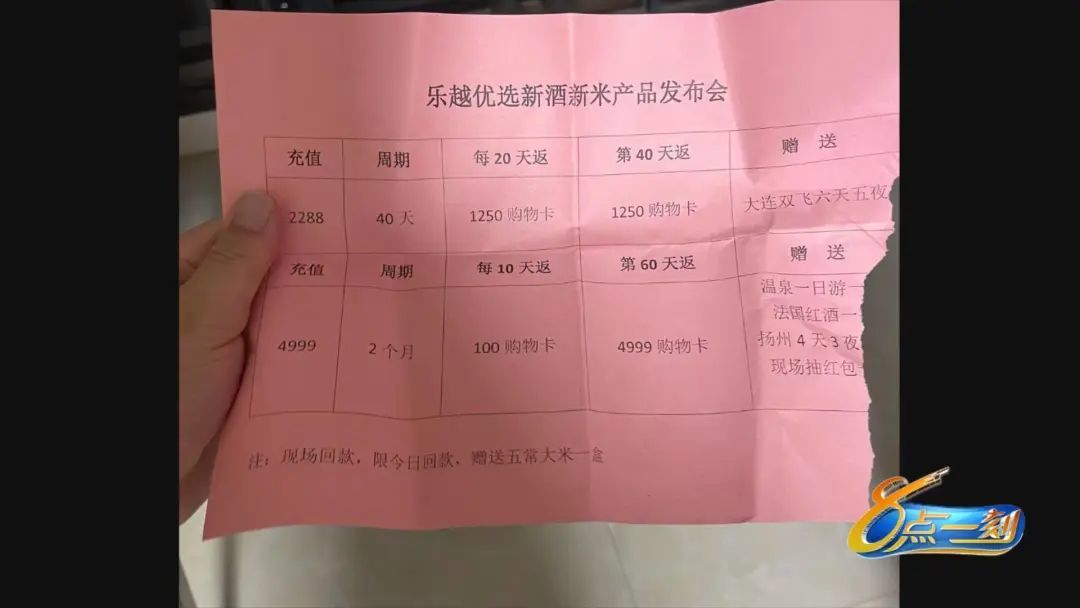 乐越优选新酒新米产品发布会
充值 周期 每20天返 第40天返 赠 送
2288 40天 1250购物卡 1250购物卡 大连双飞六天五夜
充值 周期 每10天返 第60天返 赠 送
4999 2个月 100购物卡 4999购物卡 温泉一日游一
法国红酒一
扬州4天3夜
现场抽红包
注：现场回款，限今日回款，赠送五常大米一盒
8点一刻